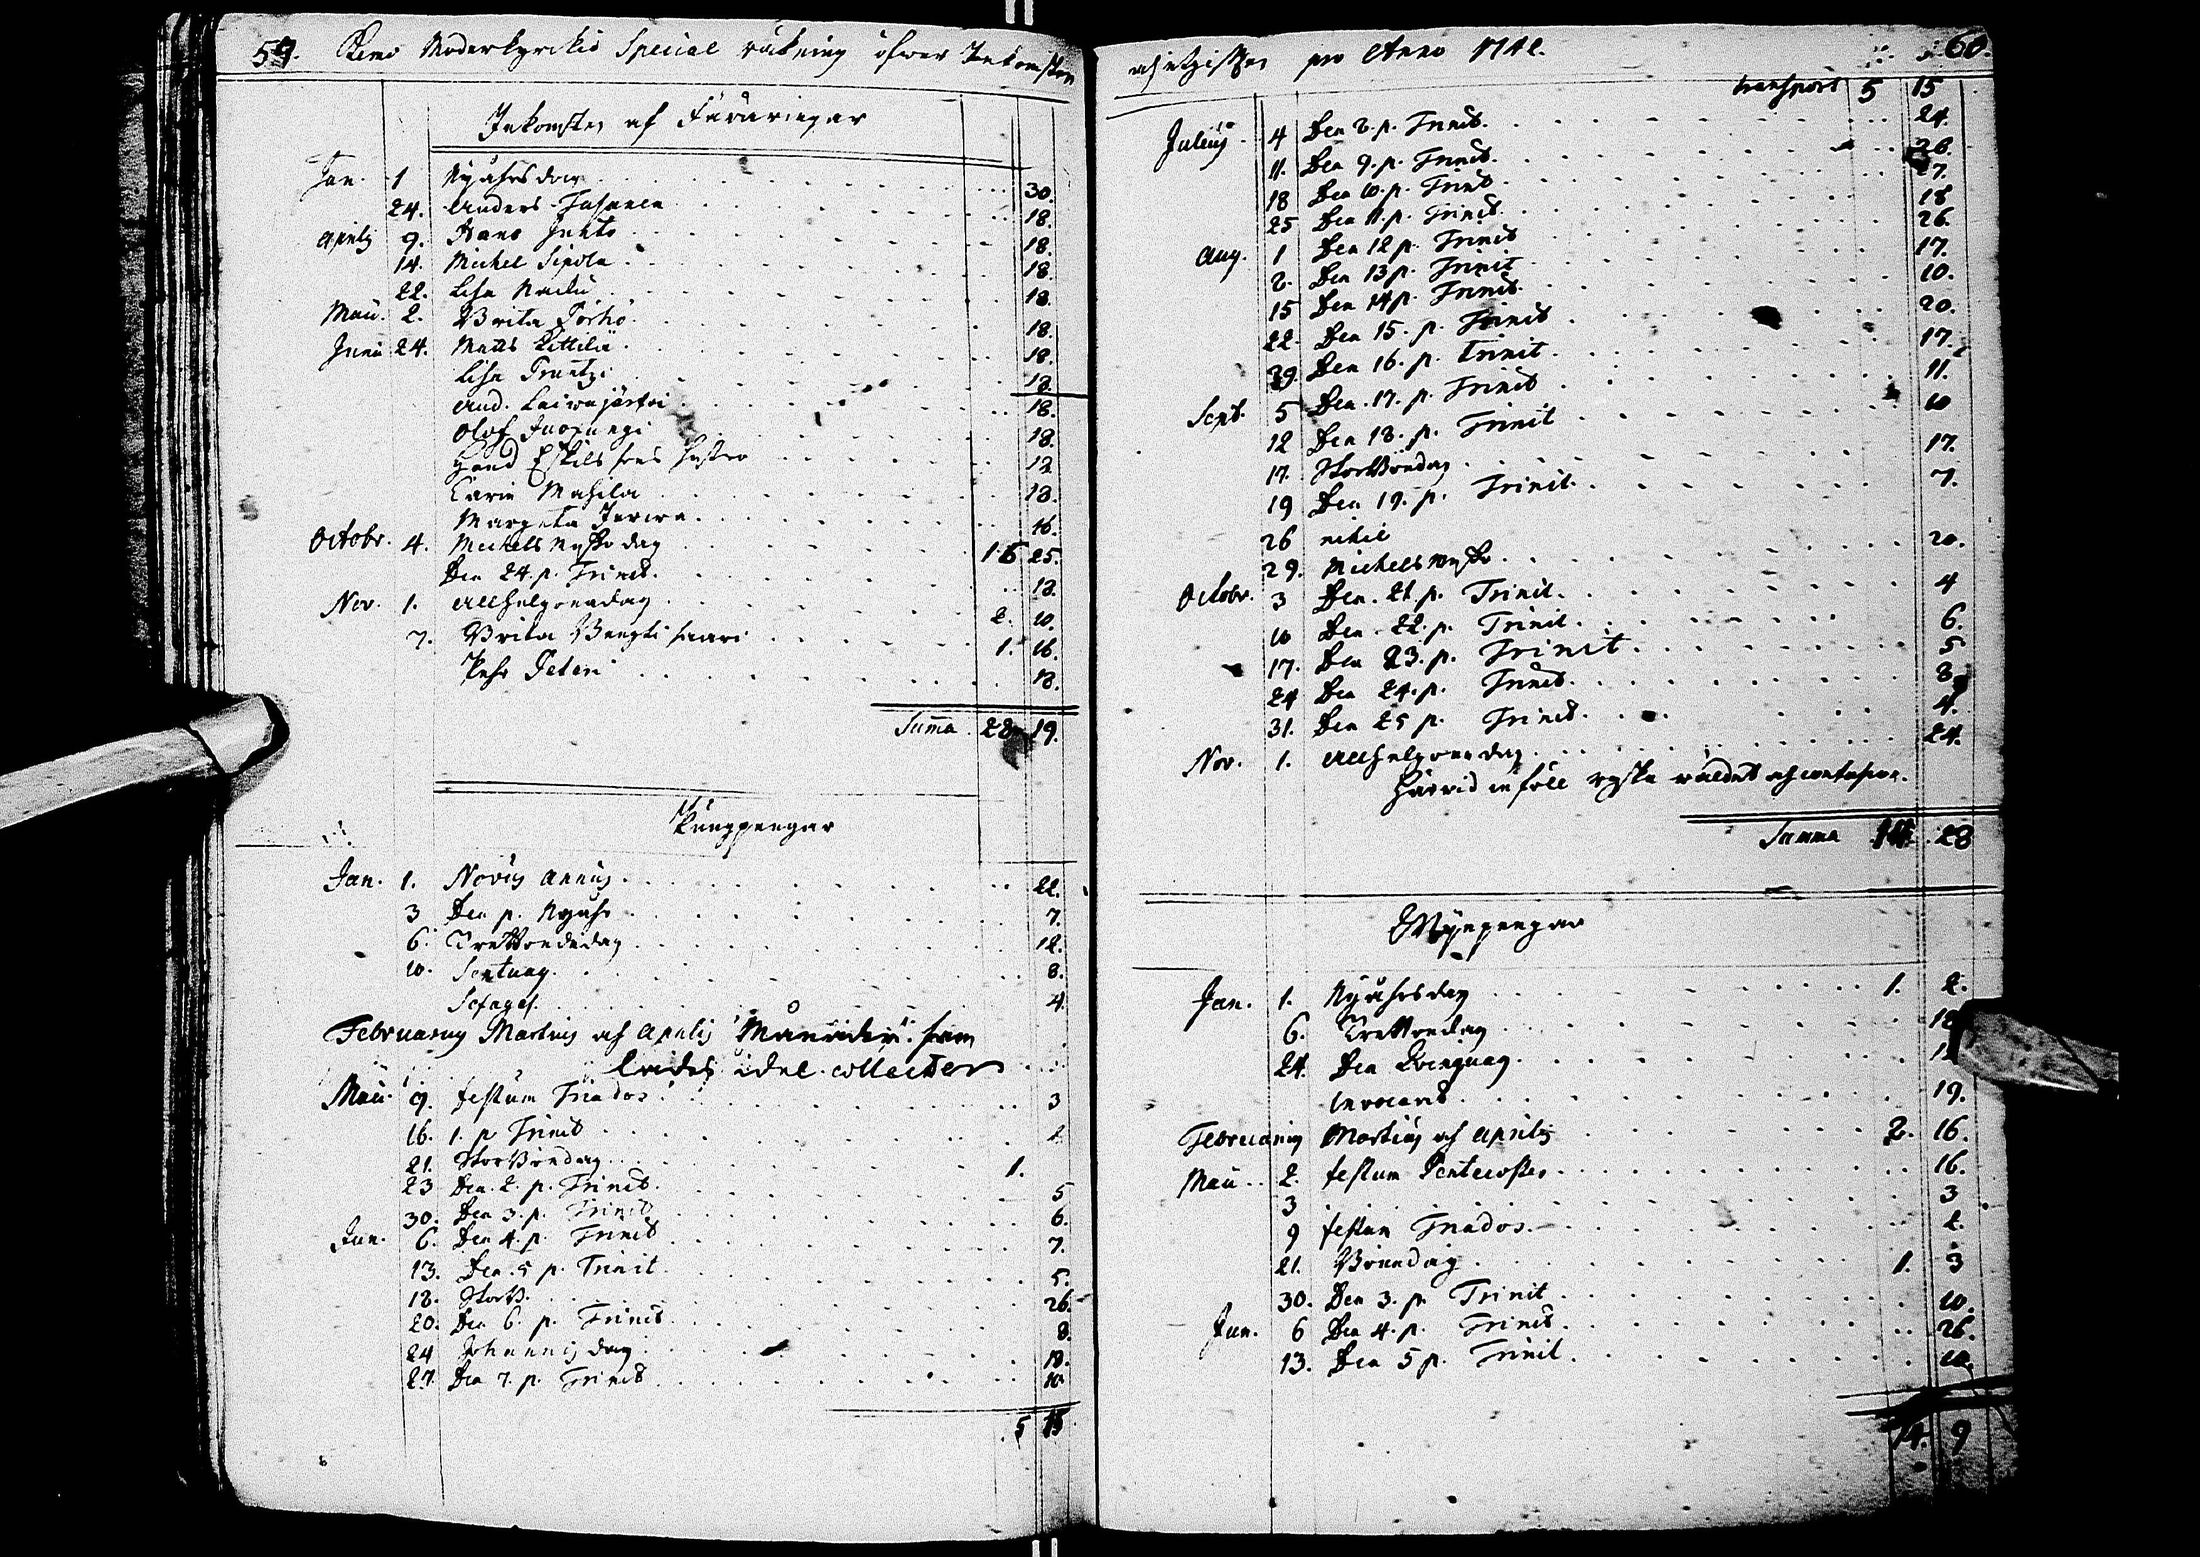 59. Kemi Moderkyrkio Special räkning öfwer Inkomsten
Inkomsten af Färäringar
Jan. 1 Nyåhrsdag 30.
24. Anders 18.
Aprilis 9. Hans Juhto 18.
14. Michel Sipola 18.
22. Lisa 18.
Maii. 2. Brita Pörhö 18.
Junii 24. Matts Kittilä 18.
Lisa 18.
And. Laiwajärfwi 18.
Olof 18.
Hans Eskils sons hustro 12
Carin Mahila 18.
Margeta 16.
Octobr. 4. Michelsmässo dag 16 25.
Den 24. p. Trinit. 18.
Nov. 1. Allhelgonadag 2. 10.
7. Brita Bengti saari 1. 16.
Pehr Peteri 18.
Summa 28 19.
Pungpengar
Jan. 1. Novus Annus 22.
3 Den p. Nyåhr 7.
6. Trettondedag 12.
10. 8.
4.
Februarius Martius och Aprilis Månader: som
lades i del. collecter
Maii 9. festum Triados 3
16. 1. p Trinit 2
21. StorBöndag 1.
23 Den. 2. p. Trinit. 5
30. Den 3. p. Trinit 6.
Jun. 6. Den 4. p. Trinit 7.
13. Den. 5 p. Trinit 5.
18. StorB. 26.
20. Den 6. p. Trinit 8.
24 Johannis dag 18.
27. Den 7. p. Trinit 10
5 15
och utgiften pro Anno 1742. 60.
transport 5 15
Julius 4 Den 8. p. Trinit. 24.
11. Den 9. p. Trinit. 26.
18 Den 10. p. Trinit 27.
25 Den 11. p. Trinit. 18
Aug. 1 Den 12 p. Trinit 26.
8. Den 13 p. Trinit 17.
15 Den 14 p. Trinit 10.
22. Den 15. p. Trinit 20.
29. Den 16. p. Trinit 17.
Sept. 5 Den. 17. p. Trinit 11.
12 Den 18. p. Trinit 10
17. StorBöndag 17.
19 Den 19. p. Trinit. 7.
26 nihil
29. Michelsmässo 20.
Octobr. 3 Den. 21. p. Trinit. 4
10 Den. 22. p. Trinit. 6.
17. Den 23. p. Trinit 5
24 Den 24. p. Trinit. 8
31. Den 25 p. Trinit. 4.
Nov. 1. Allhelgonadag 24.
Härvid inföll ryska våldet och confusion.
Summa 14. 28
Jan. 1. Nyåhrsdag 1. 2.
6. Trettondag 18
24. Den
19.
Februarius Martius och Aprilis 2. 16.
Maii 2. festum Pentecostes 16.
3 3
9 festum Triados 2.
21. Böndag 1. 3
30. Den 3. p. Trinit 10.
Jun. 6 Den 4. p. Trinit. 26.
13. Den 5 p. Trinit. 10
14. 9